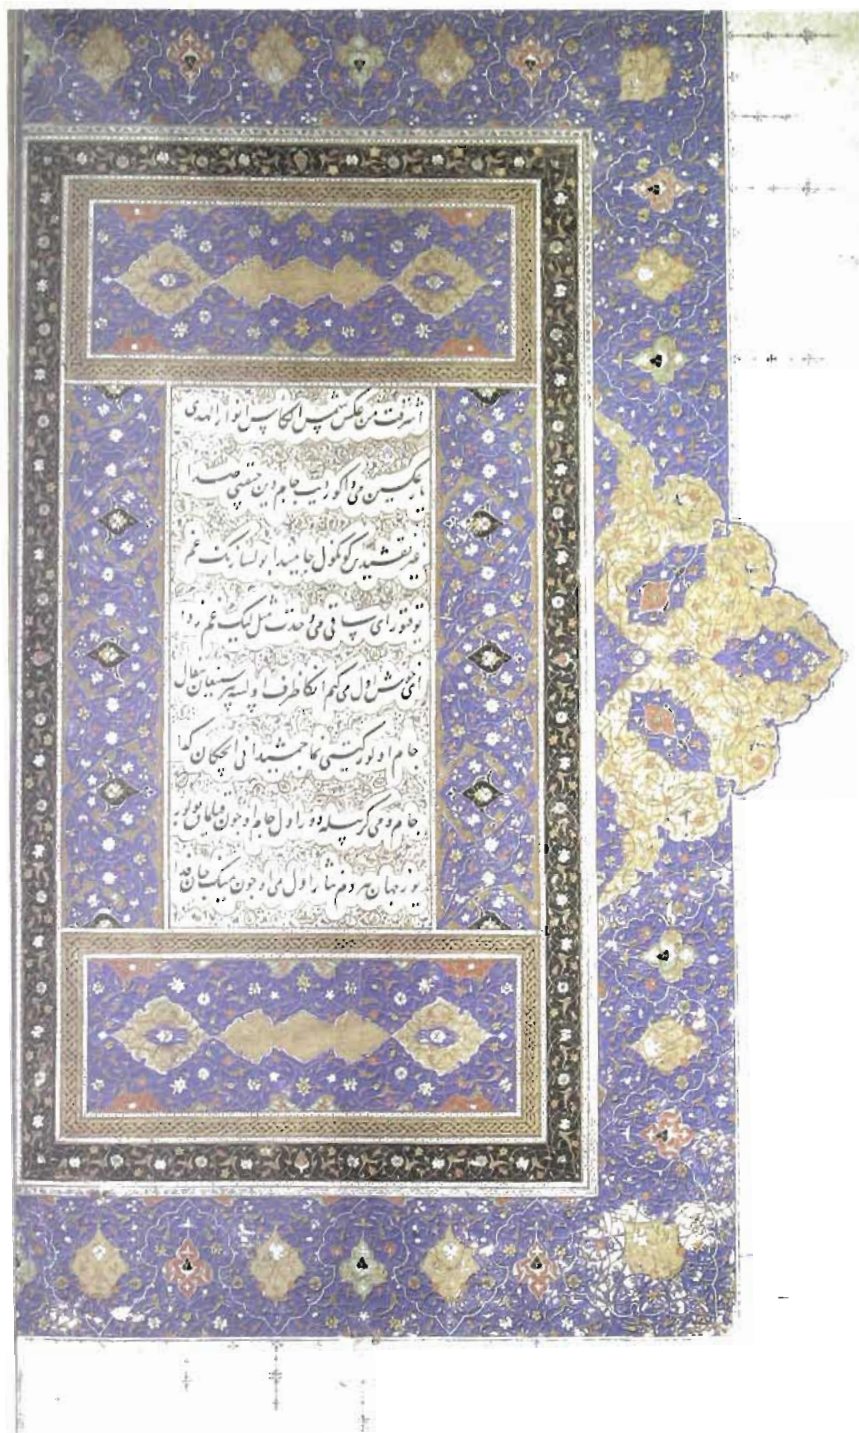 اشرقت من عکس شمس الکاس انوار الهدی
یار عکسین می دا کور دیب جام دین چیقتی صدا
غیر نقشیدین کونکول جامیدا بولسا زنک غم
یوقتور ای ساقی می وحدت مثل لیک غم زدا
ای خوش اول می کیم انکا ظرف اولسه بر سینغان سفال
جام اولور کیتی نما جمشید انی ایچکان کدا
جام و می کر بیله دور اول جام اوچون قیلماق بولور
یوز جهان هر دم نثار اول می اوچون مینک جان فدا